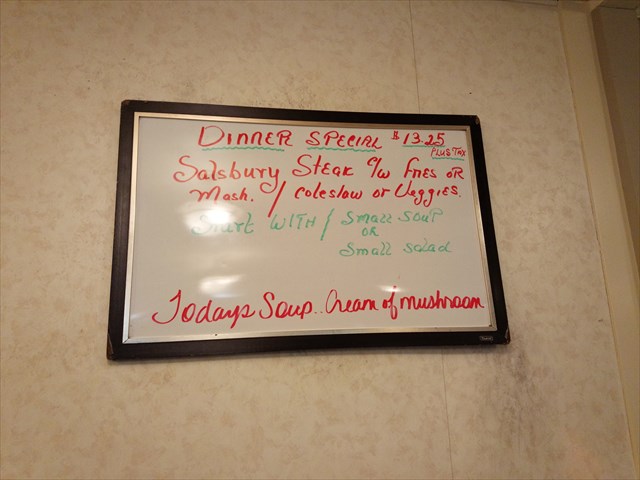 DINNER SPECIAL $13.25
PLUS TAX
Salsbury Steak c/w Fries OR
Mash. / Coleslaw or Veggies.
Start WITH / Small Soup
OR
Small Salad
Todays Soup.. Cream of mushroom